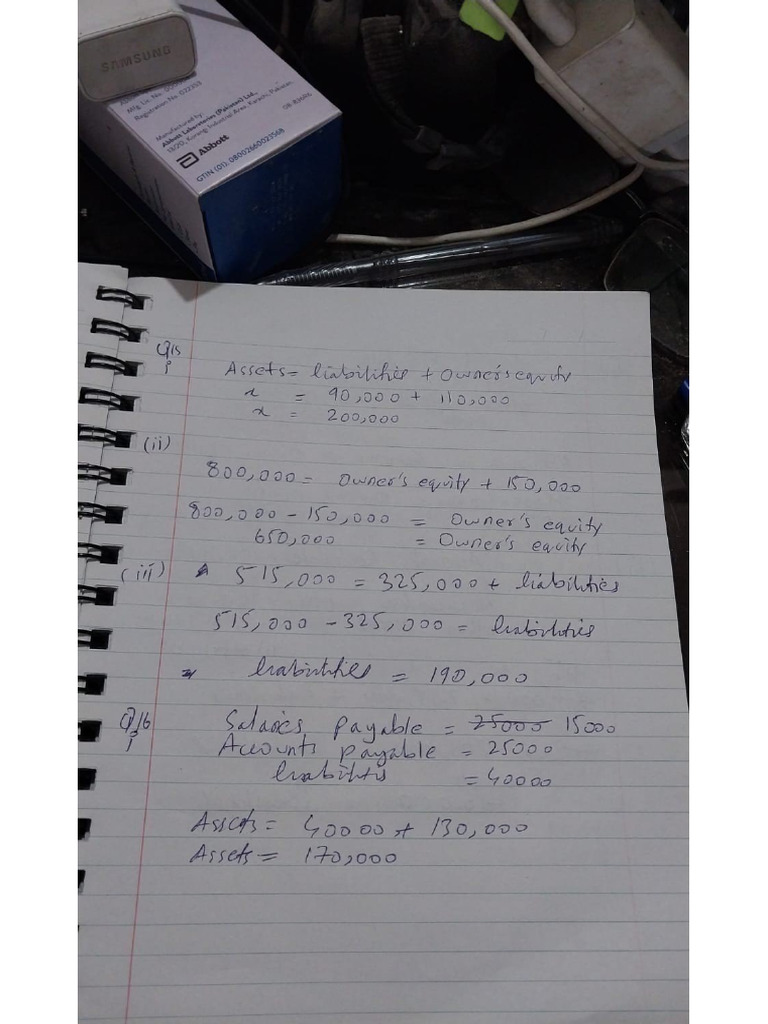 SAMSUNG
Mfg. Lic. No.
Registration No. 022353
Manufactured by:
Abbott Laboratories (Pakistan) Ltd.,
13/20, Korangi Industrial Area, Karachi, Pakistan.
Abbott
GTIN (01): 08002660023568
Q15
i
Assets = liabilities + Owner's equity
x = 90,000 + 110,000
x = 200,000
(ii)
800,000 = Owner's equity + 150,000
800,000 - 150,000 = Owner's equity
650,000 = Owner's equity
(iii) 515,000 = 325,000 + liabilities
515,000 - 325,000 = liabilities
liabilities = 190,000
Q16 Salaries payable = 25000 15000
i Accounts payable = 25000
liabilitis = 40000
Assets = 40000 + 130,000
Assets = 170,000